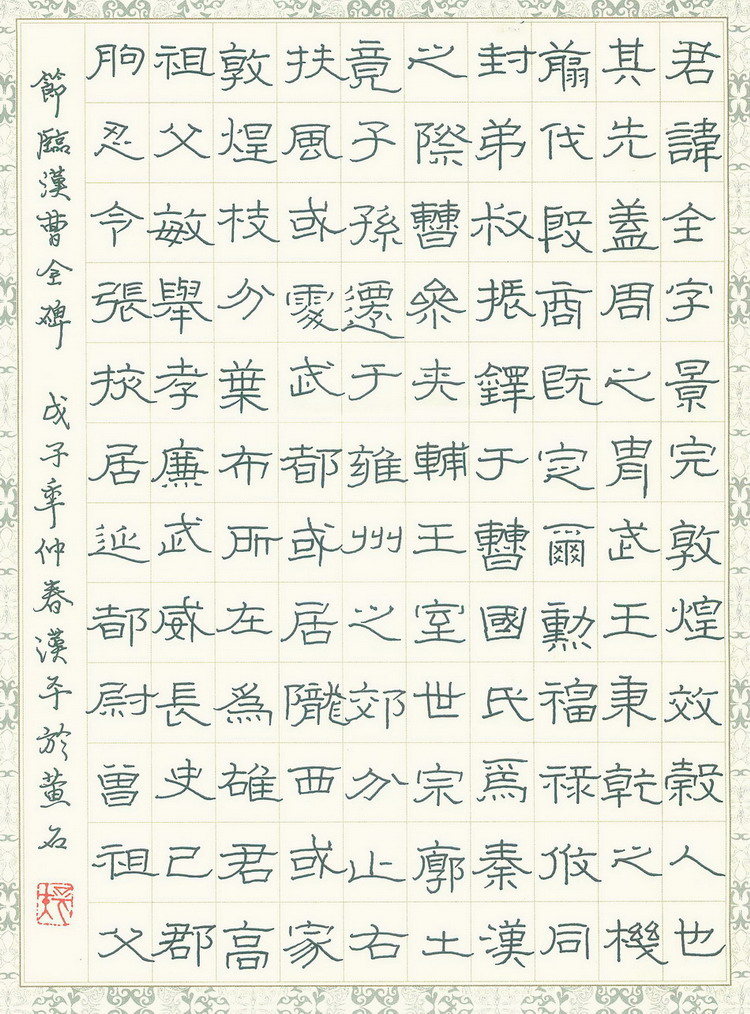 君諱全字景完敦煌效穀人也
其先蓋周之胄武王秉乾之機
翦伐殷商既定爾勳福祿攸同
封弟叔振鐸于曹國氏焉秦漢
之際曹參夾輔王室世宗廓土
竟子孫遷于雍州之郊分止右
扶風或處武都或居隴西或家
敦煌枝分葉布所在為雄君高
祖父敏舉孝廉武威長史巴郡
朐忍令張掖居延都尉曾祖父
節臨漢曹全碑 戊子年仲春漢平於黃石